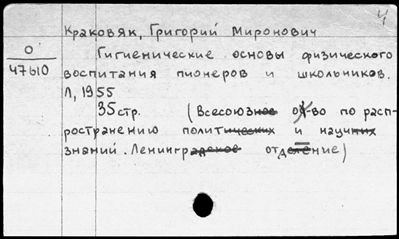 4
Краковяк, Григорий Миронович
О
47610
Гигиенические основы физического
воспитания пионеров и школьников.
Л, 1955
35 стр. (Всесоюзное о-во по расп-
ространению политических и научных
знаний. Ленинградское отделение)